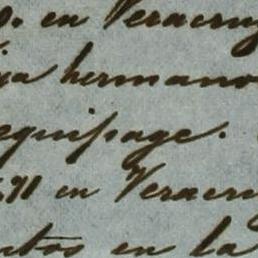 0. en Veracruz
ija hermano
equipage.
.71 en Veracru
ntos en la